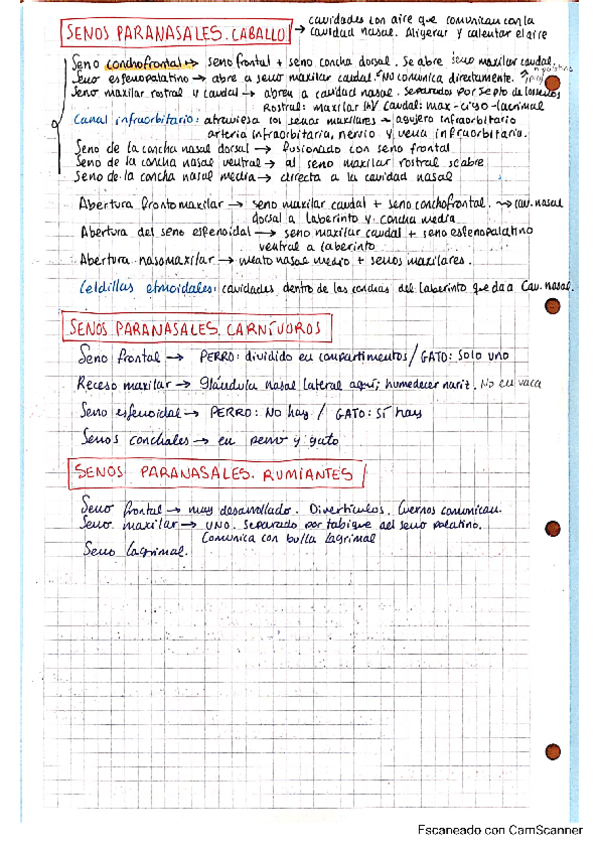 SENOS PARANASALES. CABALLO → cavidades con aire que comunican con la
cavidad nasal. Aligerar y calentar el aire
Seno conchofrontal → seno frontal + seno concha dorsal. Se abre seno maxilar caudal.
Seno esfenopalatino → abre a seno maxilar caudal. NO comunica directamente.
Seno maxilar rostral y caudal → abren a cavidad nasal. Separados por septo de los senos
Rostral: maxilar Caudal: max-cigo-lacrimal
Canal infraorbitario: atraviesa los senos maxilares → agujero infraorbitario
arteria infraorbitaria, nervio y vena infraorbitaria.
Seno de la concha nasal dorsal → fusionado con seno frontal
Seno de la concha nasal ventral → al seno maxilar rostral se abre
Seno de la concha nasal media → directa a la cavidad nasal
Abertura frontomaxilar → seno maxilar caudal + seno conchofrontal. → cav. nasal
dorsal a laberinto y concha media
Abertura del seno esfenoidal → seno maxilar caudal + seno esfenopalatino
ventral a laberinto
Abertura nasomaxilar → meato nasal medio + senos maxilares.
Celdillas etmoidales: cavidades dentro de las conchas del laberinto que da a Cav. nasal.
SENOS PARANASALES. CARNÍVOROS
Seno frontal → PERRO: dividido en compartimentos / GATO: solo uno
Receso maxilar → Glándula nasal lateral aquí; humedecer nariz. No en vaca
Seno esfenoidal → PERRO: NO hay / GATO: SÍ hay
Senos conchales → en perro y gato
SENOS PARANASALES. RUMIANTES
Seno frontal → muy desarrollado. Divertículos. Cuernos comunican.
Seno maxilar → UNO. Separado por tabique del seno palatino.
Comunica con bulla lagrimal
Seno lagrimal.
Escaneado con CamScanner